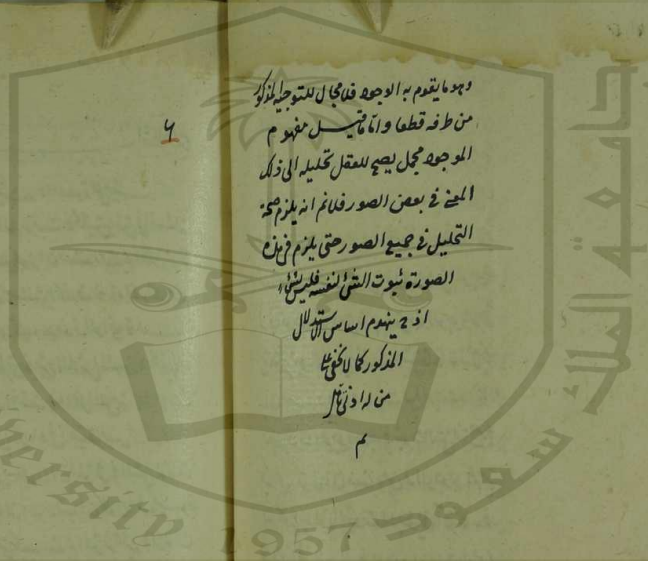 وهو ما يقوم به الوجود فلا مجال للتوجيه المذكور
من طرفه قطعا واما ما قيل مفهوم
الموجود مجمل يصح للعقل تحليله الى ذلك
المعنى في بعض الصور فلانم انه يلزم صحة
التحليل في جميع الصور حتى يلزم في هذه
الصورة ثبوت الشئ لنفسه فليس بشئ
اذ ح ينهدم اساس الاستدلال
المذكور كما لا يخفى على
من له ادنى تأمل
م
٦
جامعة الملك سعود
versity 1957